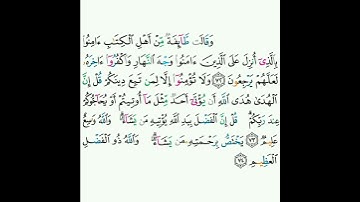 وَقَالَت طَّآئِفَةٌ مِّنْ أَهْلِ ٱلْكِتَٰبِ ءَامِنُوا۟
بِٱلَّذِىٓ أُنزِلَ عَلَى ٱلَّذِينَ ءَامَنُوا۟ وَجْهَ ٱلنَّهَارِ وَٱكْفُرُوٓا۟ ءَاخِرَهُۥ
لَعَلَّهُمْ يَرْجِعُونَ ٧٢ وَلَا تُؤْمِنُوٓا۟ إِلَّا لِمَن تَبِعَ دِينَكُمْ قُلْ إِنَّ
ٱلْهُدَىٰ هُدَى ٱللَّهِ أَن يُؤْتَىٰٓ أَحَدٌ مِّثْلَ مَآ أُوتِيتُمْ أَوْ يُحَآجُّوكُمْ
عِندَ رَبِّكُمْ قُلْ إِنَّ ٱلْفَضْلَ بِيَدِ ٱللَّهِ يُؤْتِيهِ مَن يَشَآءُ وَٱللَّهُ وَٰسِعٌ
عَلِيمٌ ٧٣ يَخْتَصُّ بِرَحْمَتِهِۦ مَن يَشَآءُ وَٱللَّهُ ذُو ٱلْفَضْلِ
ٱلْعَظِيمِ ٧٤